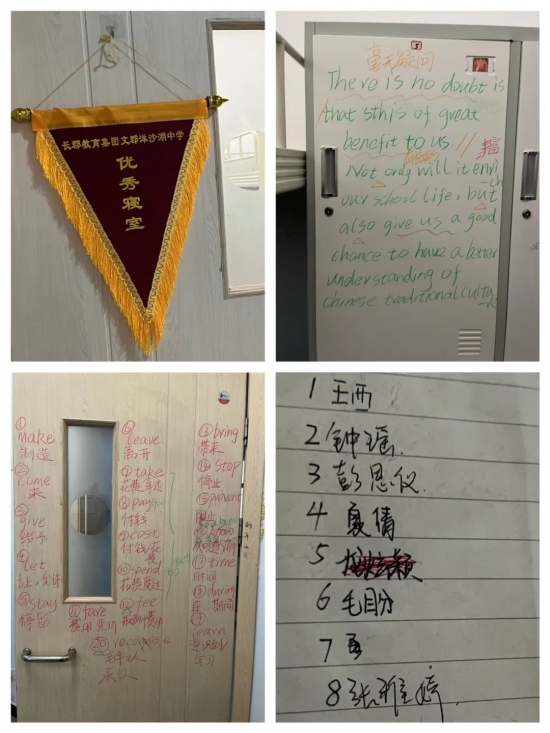 长郡教育集团文郡洋沙湖中学
优秀寝室
5
毫无疑问
There is no doubt is
that sth is of great
benefit to us. //
Not only will it enri
-ch
our school life, but
also give us a good
chance to have a better
understanding of
chinese traditional cultu
-re
① make
制造
② come
来
③ give
给予
④ let
让，允许
⑤ stay
停留
leave
离开
take
花费
pay
付钱
cost
付钱/花费
spend
花费
fare
费用
fee
费用
⑬ bring
带来
⑭ stop
停止
⑮ prevent
阻止
⑰ time
时间
⑱ during
在 期间
⑲ learn
学习
⑳ recognise
承认
1 王西
2 钟瑶
3 彭思仪
4 夏倩
5
6 毛目分
7
8 张雅婷